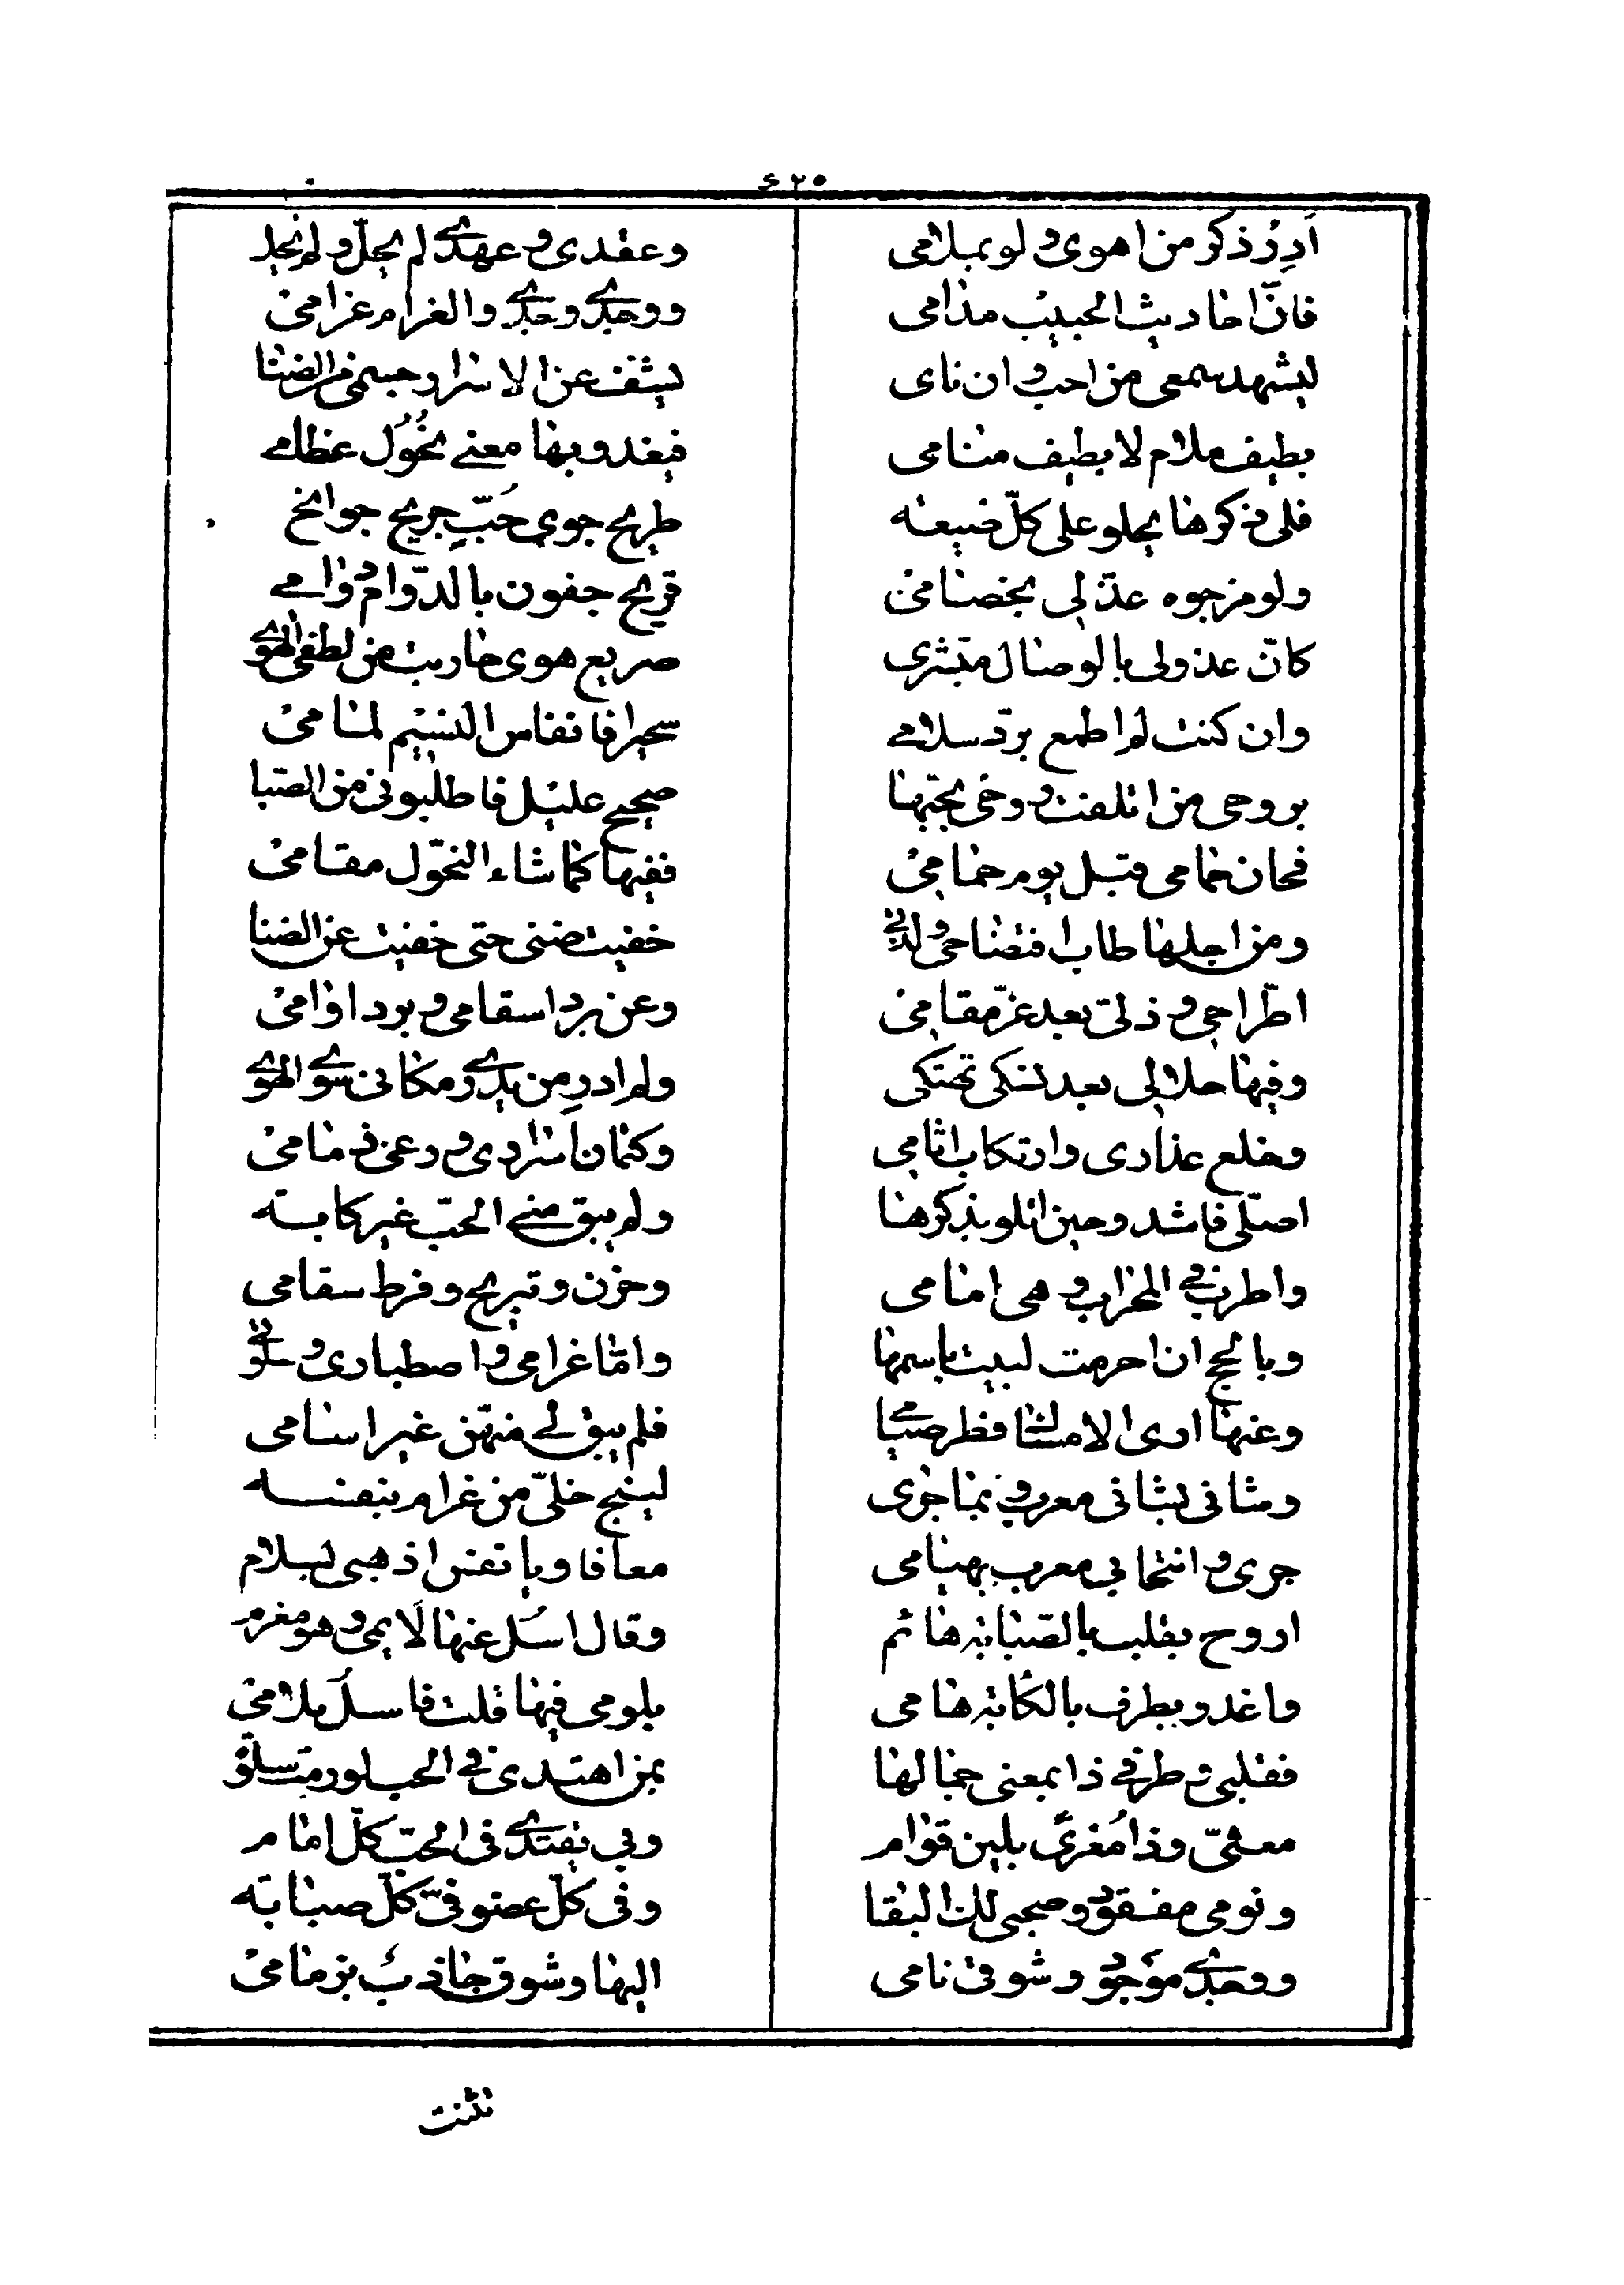 ٤٢٠
اَدِرْ ذكر من اهوى ولو بملامى
فانّ احاديث الحبيب مدامى
ليشهد سمعى من احب وان ناى
بطيف ملام لا بطيف منامى
فلى ذكرها يحلو على كلّ صيغه
ولو مزجوه عذّلى بخصامى
كانّ عذولى بالوصال مبشرى
وان كنت لم اطمع بردّ سلامى
بروحى من اتلفت روحى بحبّها
فحان حمامى قبل يوم حمامى
ومن اجلها طاب افتضاحى ولذ لى
اطّراحى وذلتى بعد عزّ مقامى
وفيها حلالى بعد نسكى تهتكى
وخلع عذارى وارتكاب اثامى
اصلّى فاشدو حين اتلو بذكرها
واطرب فى المحراب وهى امامى
وبالحج ان احرمت لبيت باسمها
وعنها ارى الامساك فطر صيامى
وشانى بشانى معرب وبما جرى
جرى وانتحابى معرب بهيامى
اروح بقلب بالصبابة هائم
واغدو بطرف بالكآبة هامى
فقلبى وطرفى ذا بمعنى جمالها
معنّى وذا مُغرىً بلين قوام
ونومى مفقود وصبحى لك البقا
ووجدى موجود وشوقى نامى
وعقدى وعهدى لم يحلّ ولم يحل
ووجدى وجدى والغرام غرامى
يشف عن الاسرار جسمى من الضنا
فيغدو بها معنى نُحُول عظامى
طريح جوى حُبّ جريح جوانح
قريح جفون بالدّوام دوامى
صريع هوى جاريت من لطفى الهوى
سحيرا فانفاس النسيم لمامى
صحيح عليل فاطلبونى من الصّبا
ففيها كما شاء النحول مقامى
خفيت ضنى حتى خفيت عن الضنا
وعن برء اسقامى وبرد اوامى
ولم ادرِ من يدرى مكانى سوى الهوى
وكتمان اسرارى ورعى ذمامى
ولم يبق منى الحبّ غير كابة
وحزن وتبريح وفرط سقامى
وامّا غرامى واصطبارى وسلوتى
فلم يبق لى منهنّ غير اسامى
لينج خلىّ من غرام بنفسه
معافا ويا نفس اذهبى بسلام
وقال اسلُ عنها لائمى وهو مغرم
بلومى فيها قلت فاسلُ ملامى
بمن اهتدى فى الحب لو رمت سلوة
وبى يقتدى فى الحبّ كلّ امام
وفى كلّ عضو فىّ كلّ صبابة
اليها وشوق جاذب بزمامى
تثنت